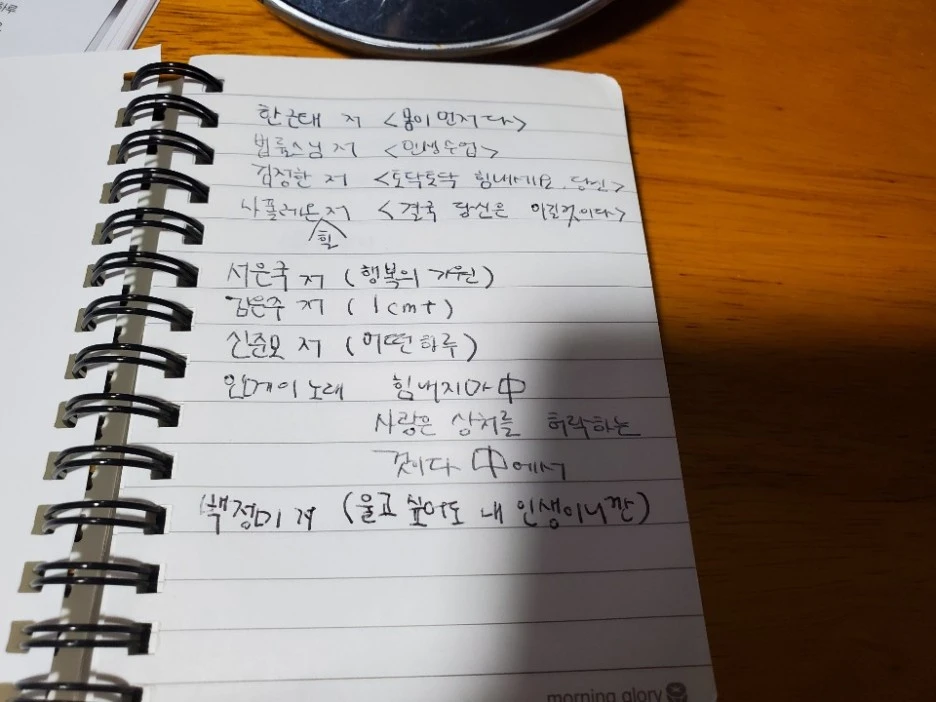 하루
한근태 저 <몸이 먼저다>
법륜스님 저 <인생수업>
김정한 저 <토닥토닥 힘내세요, 당신>
나폴레온 저 <결국 당신은 이길것이다>
힐
서은국 저 (행복의 기원)
김은주 저 (1cm+)
신준모 저 (어떤하루)
안게이 노래 힘내지마 中
사랑은 상처를 허락하는
것이다 中에서
백정미 저 (울고 싶어도 내 인생이니깐)
morning glory